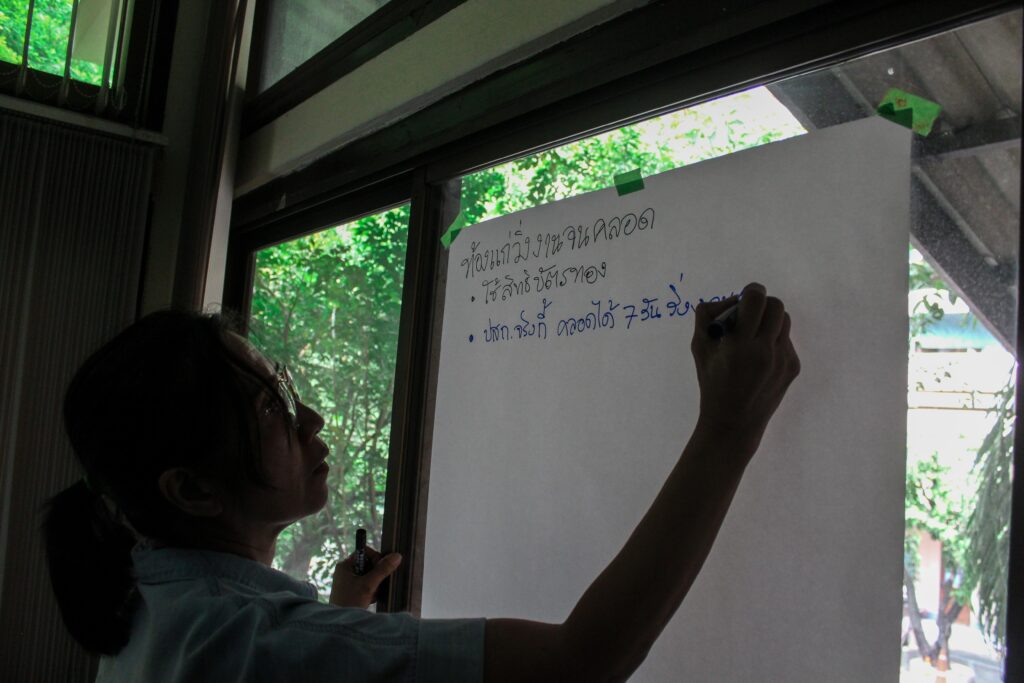 ท้องแก่วิ่งงานจนคลอด
• ใช้สิทธิบัตรทอง
• ปสก.จริงกี้ คลอดได้ 7 วัน วิ่ง